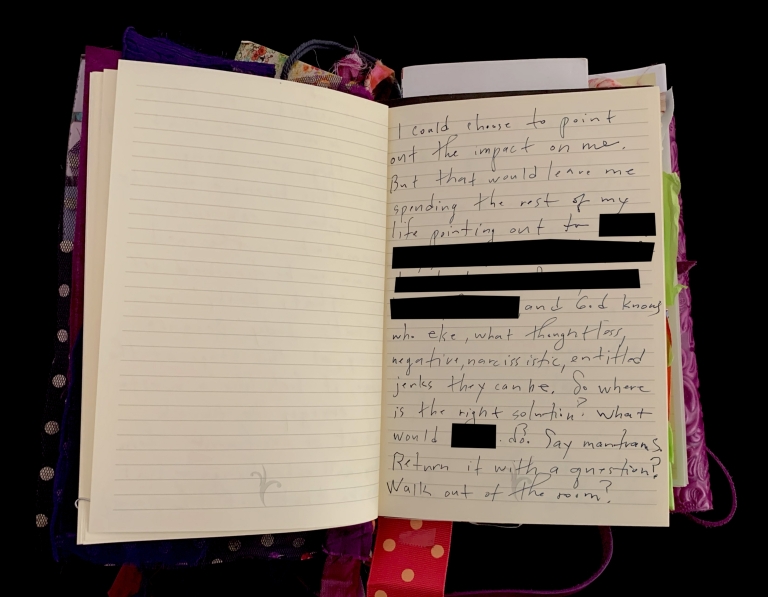 I could choose to point
out the impact on me.
But that would leave me
spending the rest of my
life pointing out to
and God knows
who else, what thoughtless,
negative, narcissistic, entitled
jerks they can be. So where
is the right solution? What
would do? Say mantrams.
Return it with a question?
Walk out of the room?